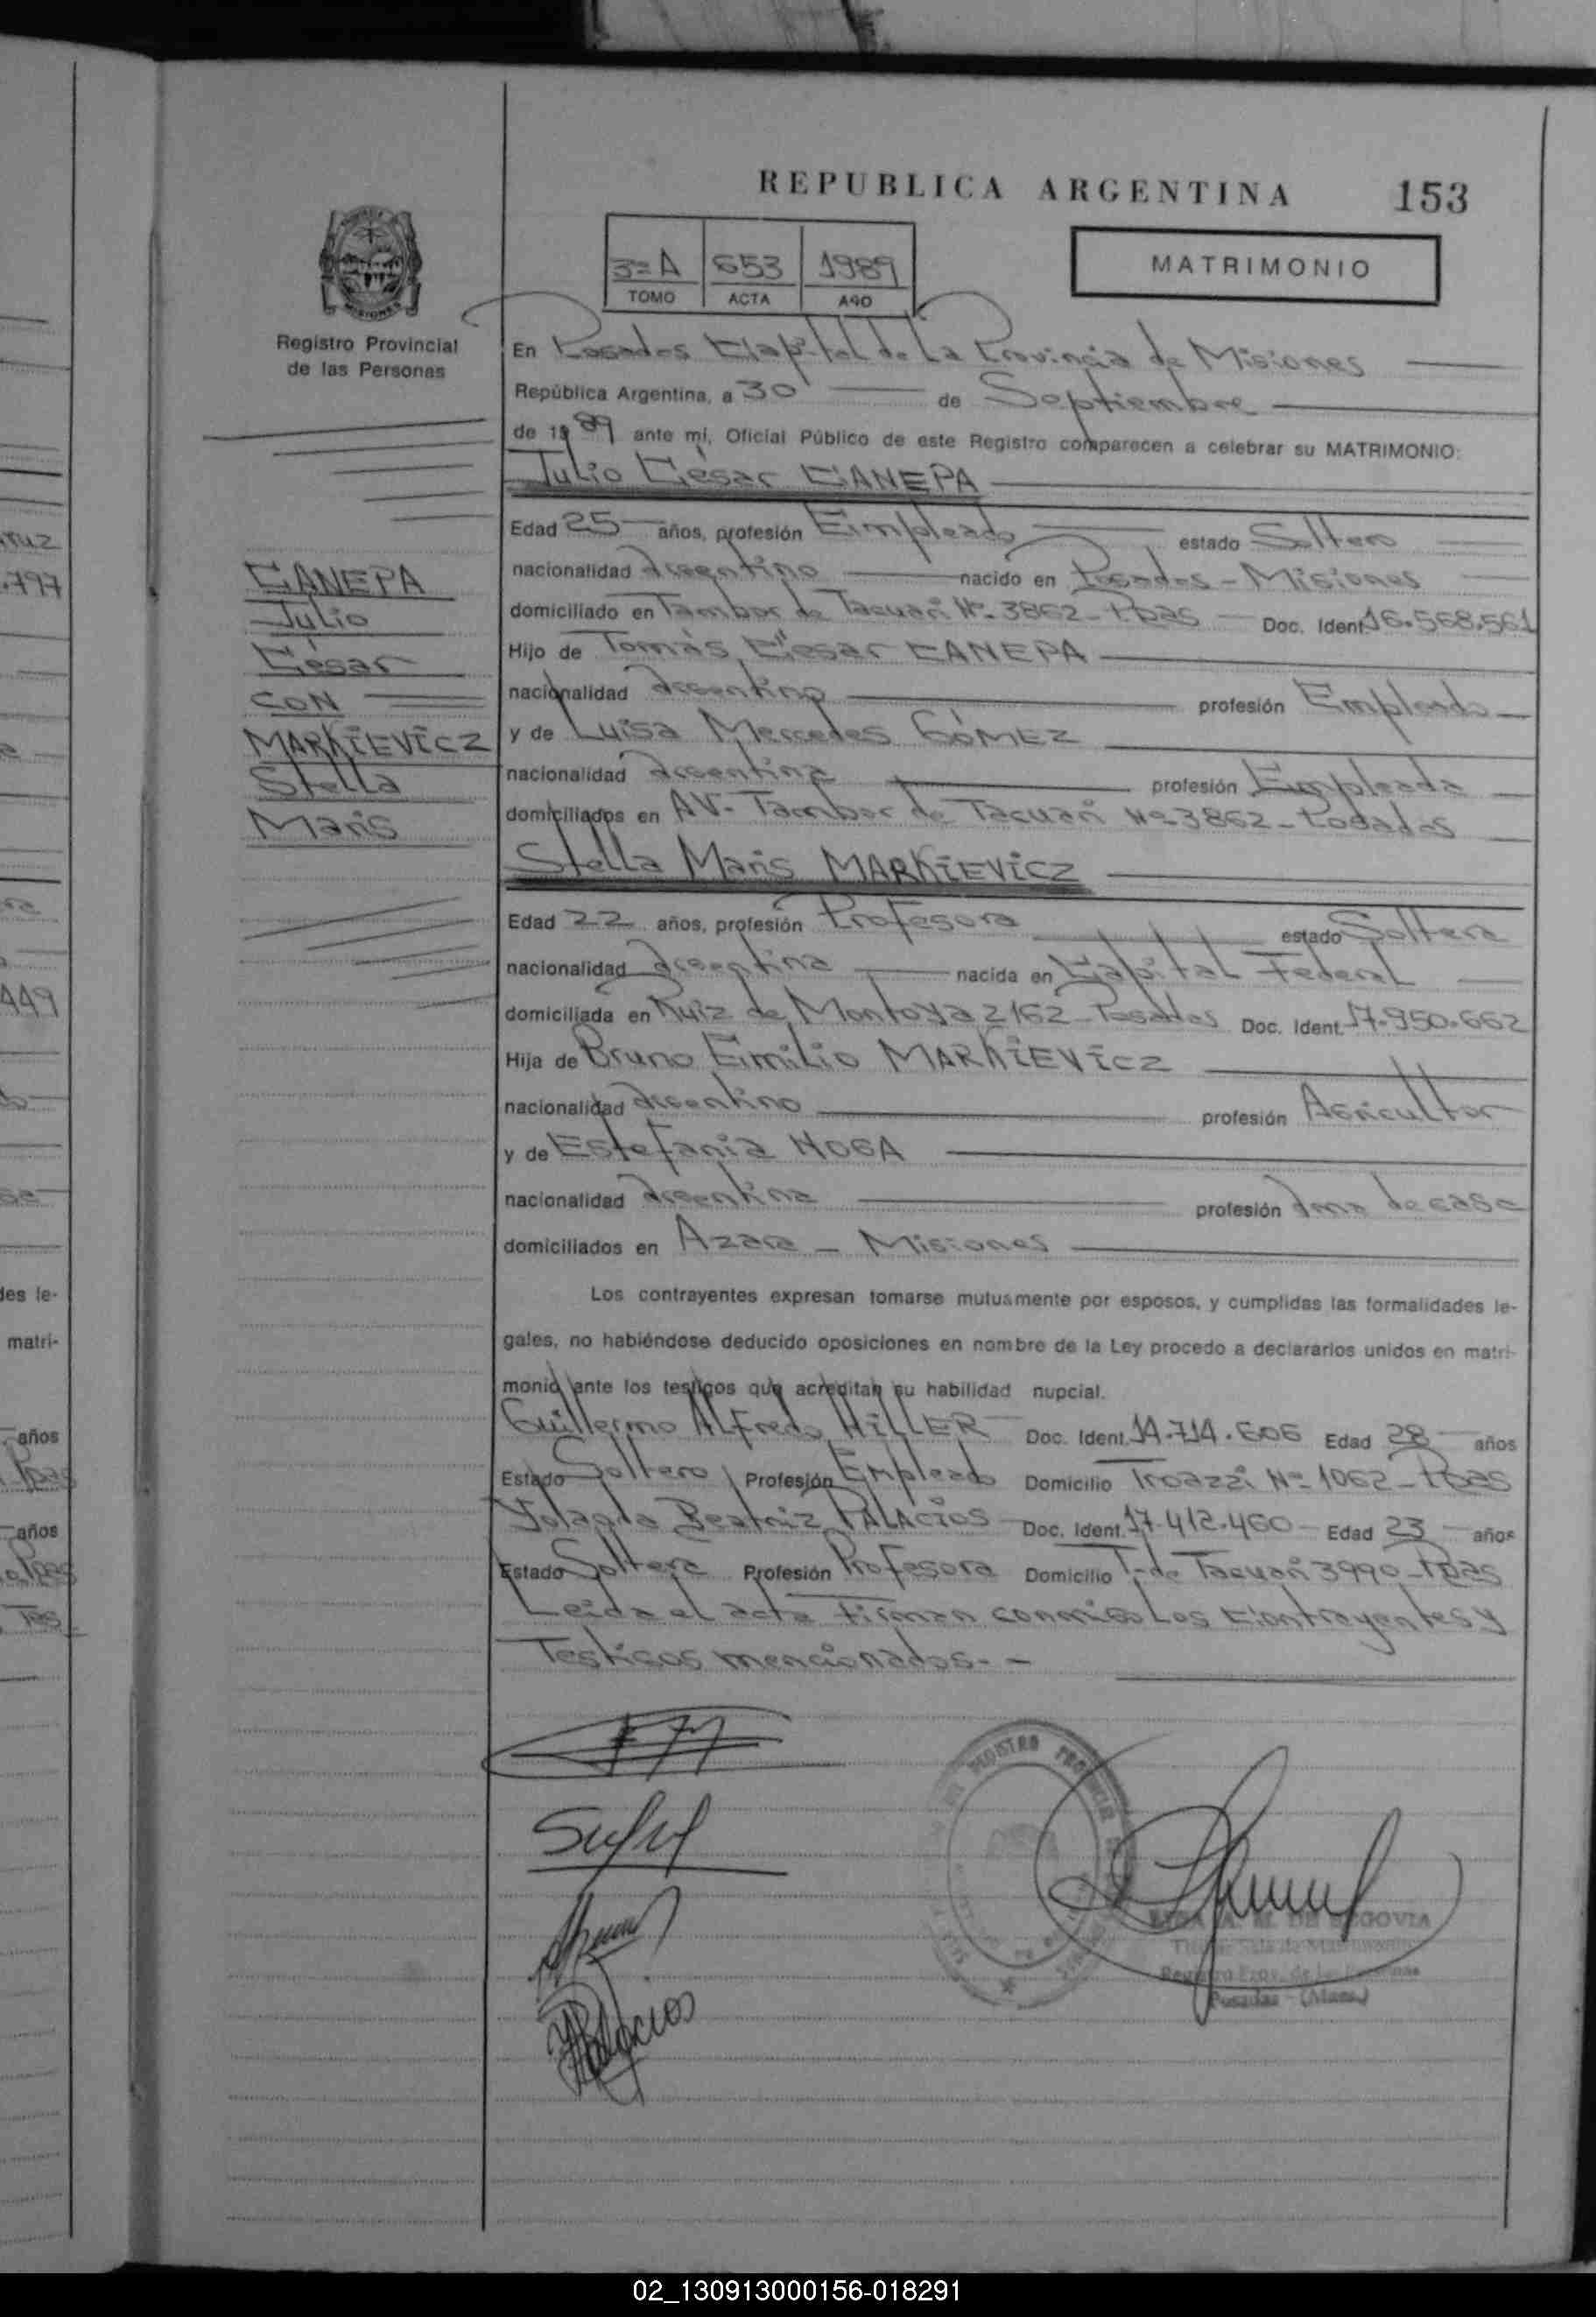 REPUBLICA ARGENTINA 153
3ºA 653 1989
TOMO ACTA AÑO
MATRIMONIO
MISIONES
Registro Provincial
de las Personas
En Posadas Capital de La Provincia de Misiones
República Argentina, a 30 de Septiembre
de 1989 ante mí, Oficial Público de este Registro comparecen a celebrar su MATRIMONIO:
Julio César CANEPA
Edad 25 años, profesión Empleado estado Soltero
nacionalidad argentino nacido en Posadas - Misiones
domiciliado en Tambor de Tacuarí Nº 3862 - Pdas Doc. Ident. 16.568.561
Hijo de Tomás César CANEPA
nacionalidad argentino profesión Empleado
y de Luisa Mercedes GÓMEZ
nacionalidad argentina profesión Empleada
domiciliados en AV. Tambor de Tacuarí Nº 3862 - Posadas
Stella Maris MARKIEVICZ
Edad 22 años, profesión Profesora estado Soltera
nacionalidad argentina nacida en Capital Federal
domiciliada en Ruiz de Montoya 2162 - Posadas Doc. Ident. 17.950.662
Hija de Bruno Emilio MARKIEVICZ
nacionalidad argentino profesión Agricultor
y de Estefania NOGA
nacionalidad argentina profesión Ama de casa
domiciliados en Azara - Misiones
Los contrayentes expresan tomarse mutuamente por esposos, y cumplidas las formalidades le-
gales, no habiéndose deducido oposiciones en nombre de la Ley procedo a declararlos unidos en matri-
monio ante los testigos que acreditan su habilidad nupcial.
Guillermo Alfredo HILLER Doc. Ident. 14.714.606 Edad 28 años
Estado Soltero Profesión Empleado Domicilio Troazzi Nº 1062 - Pdas
Yolanda Beatriz PALACIOS Doc. Ident. 17.412.460 Edad 23 años
Estado Soltera Profesión Profesora Domicilio T. de Tacuarí 3990 - Pdas
Leída el acta firman conmigo Los Contrayentes y
Testigos mencionados.-
CANEPA
Julio
César
CON
MARKIEVICZ
Stella
Maris
Palacios
REGISTRO PROVINCIAL
A. M. DE SEGOVIA
Sala de Matrimonio
Registro Prov. de las Personas
Posadas (Mnes.)
ruz
.797
449
des le-
matri-
años
Pdas
años
Pdas
02_130913000156-018291